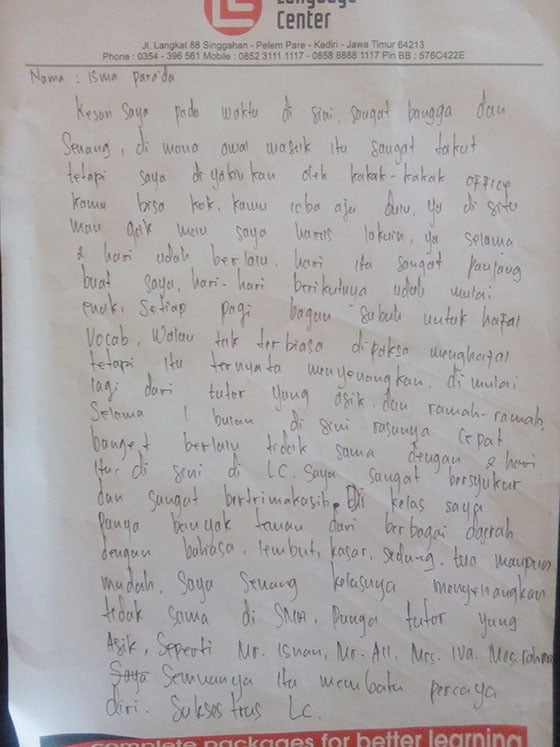 Language
Center
Jl. Langkat 88 Singgahan - Pelem Pare - Kediri - Jawa Timur 64213
Phone : 0354 - 396 561 Mobile : 0852 3111 1117 - 0858 8888 1117 Pin BB : 576C422E
Nama : Isma Para'da
Kesan Saya pada waktu di sini, sangat bangga dan
Senang, di mana awal masuk itu sangat takut
tetapi saya di yakinkan oleh kakak-kakak office
kamu bisa kok, kamu coba aja dulu, ya di situ
mau gak mau saya harus lakuin, ya selama
2 hari udah berlalu, hari itu sangat panjang
buat saya, hari-hari berikutnya udah mulai
enak, Setiap pagi bagun subuh untuk hafal
Vocab, Walau tak terbiasa dipaksa menghafal
tetapi itu ternyata menyenangkan, di mulai
lagi dari tutor yang asik, dan ramah-ramah,
Selama 1 bulan di sini rasanya cepat
banget berlalu tidak sama dengan 2 hari
itu, di sini di LC, Saya sangat bersyukur
dan sangat bertrimakasih, Di kelas saya
Punya banyak teman dari berbagai daerah
dengan bahasa, lembut, kasar, sedang, tua maupun
mudah, Saya Senang kelasnya menyenangkan
tidak sama di SMA, Punya tutor yang
Asik, Seperti Mr. Isnan, Mr. Ari, Mrs. Iva, Mrs. rahma
Saya Semuanya itu membatu percaya
diri. Sukses trus LC.
complete packages for better learning